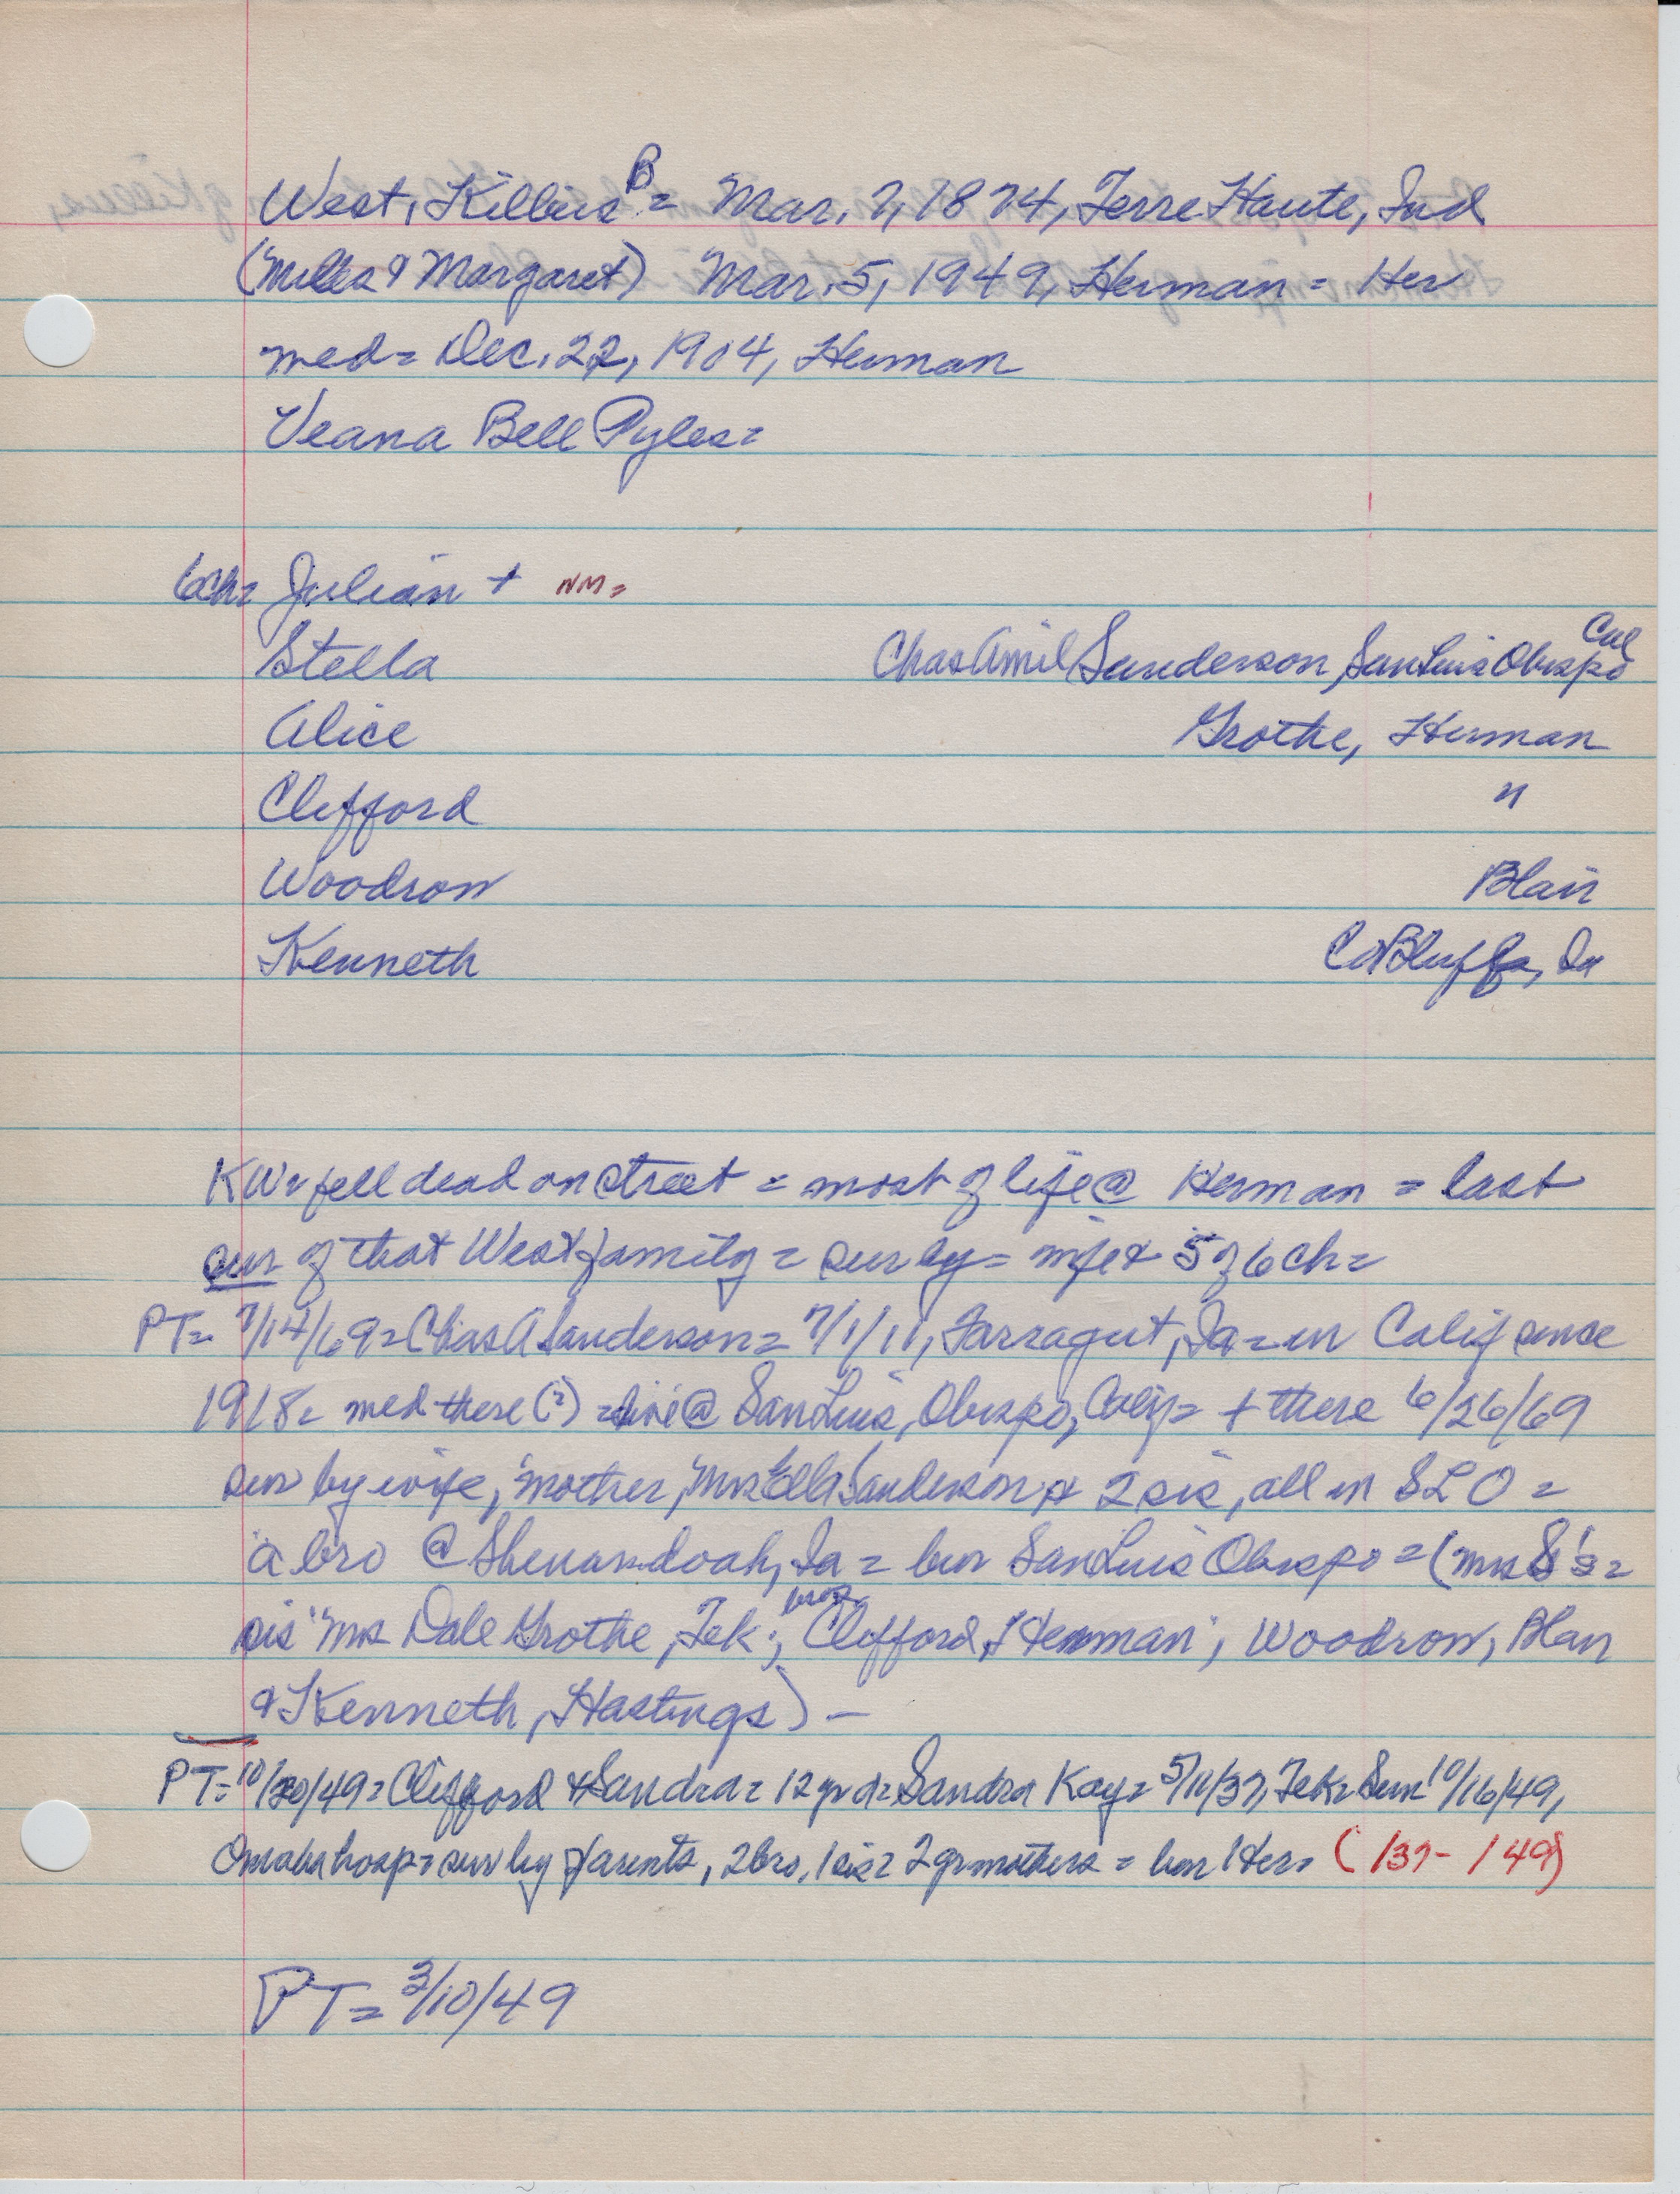 West, Killius B = Mar. 7, 1874, Terre Haute, Ind
(Miles & Margaret) Mar. 5, 1949, Herman = Her
med = Dec. 22, 1904, Herman
Veana Bell Pyles =
6ch = Julian + NM =
Stella Chas Amil Sanderson, San Luis Obispo Cal
Alice Grothe, Herman
Clifford "
Woodrow Blair
Kenneth Co Bluffs, Ia
KW = fell dead on street = most of life @ Herman = last
sur of that West family = sur by = wife & 5 of 6 ch =
PT = 7/14/69 = Chas A Sanderson = 7/1/11, Farragut, Ia = in Calif since
1918 = med there (?) = live @ San Luis, Obispo, Calif = + there 6/26/69
sur by wife, mother, Mrs Ella Sanderson & 2 sis, all in SLO =
a bro @ Shenandoah, Ia = bur San Luis Obispo = (Mrs S's =
sis Mrs Dale Grothe, Tek; bros Clifford, Herman; Woodrow, Blair
& Kenneth, Hastings) -
PT = 10/20/49 = Clifford & Sandra = 12 yr d = Sandra Kay = 5/11/37, Tek = Sun 10/16/49,
Omaha hosp = sur by parents, 2 bro, 1 sis = 2 grmothers = bur Her = (/37 - /49)
PT = 3/10/49